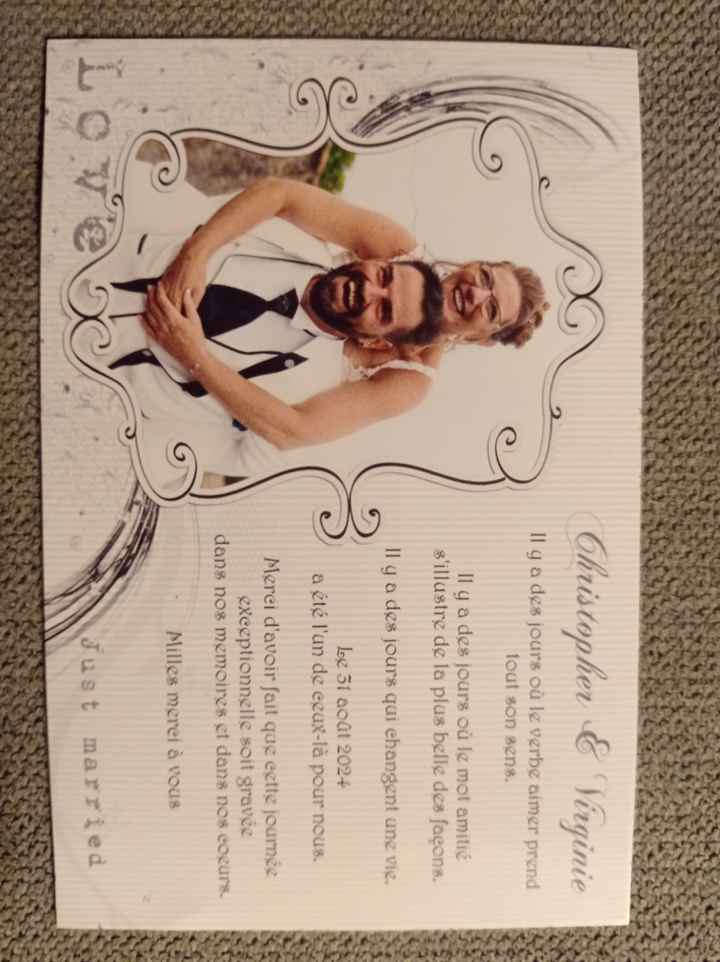 Christopher & Virginie
Il y a des jours où le verbe aimer prend
tout son sens.
Il y a des jours où le mot amitié
s'illustre de la plus belle des façons.
Il y a des jours qui changent une vie.
Le 31 août 2024
a été l'un de ceux-là pour nous.
Merci d'avoir fait que cette journée
exceptionnelle soit gravée
dans nos memoires et dans nos coeurs.
Milles merci à vous
Love
Just married